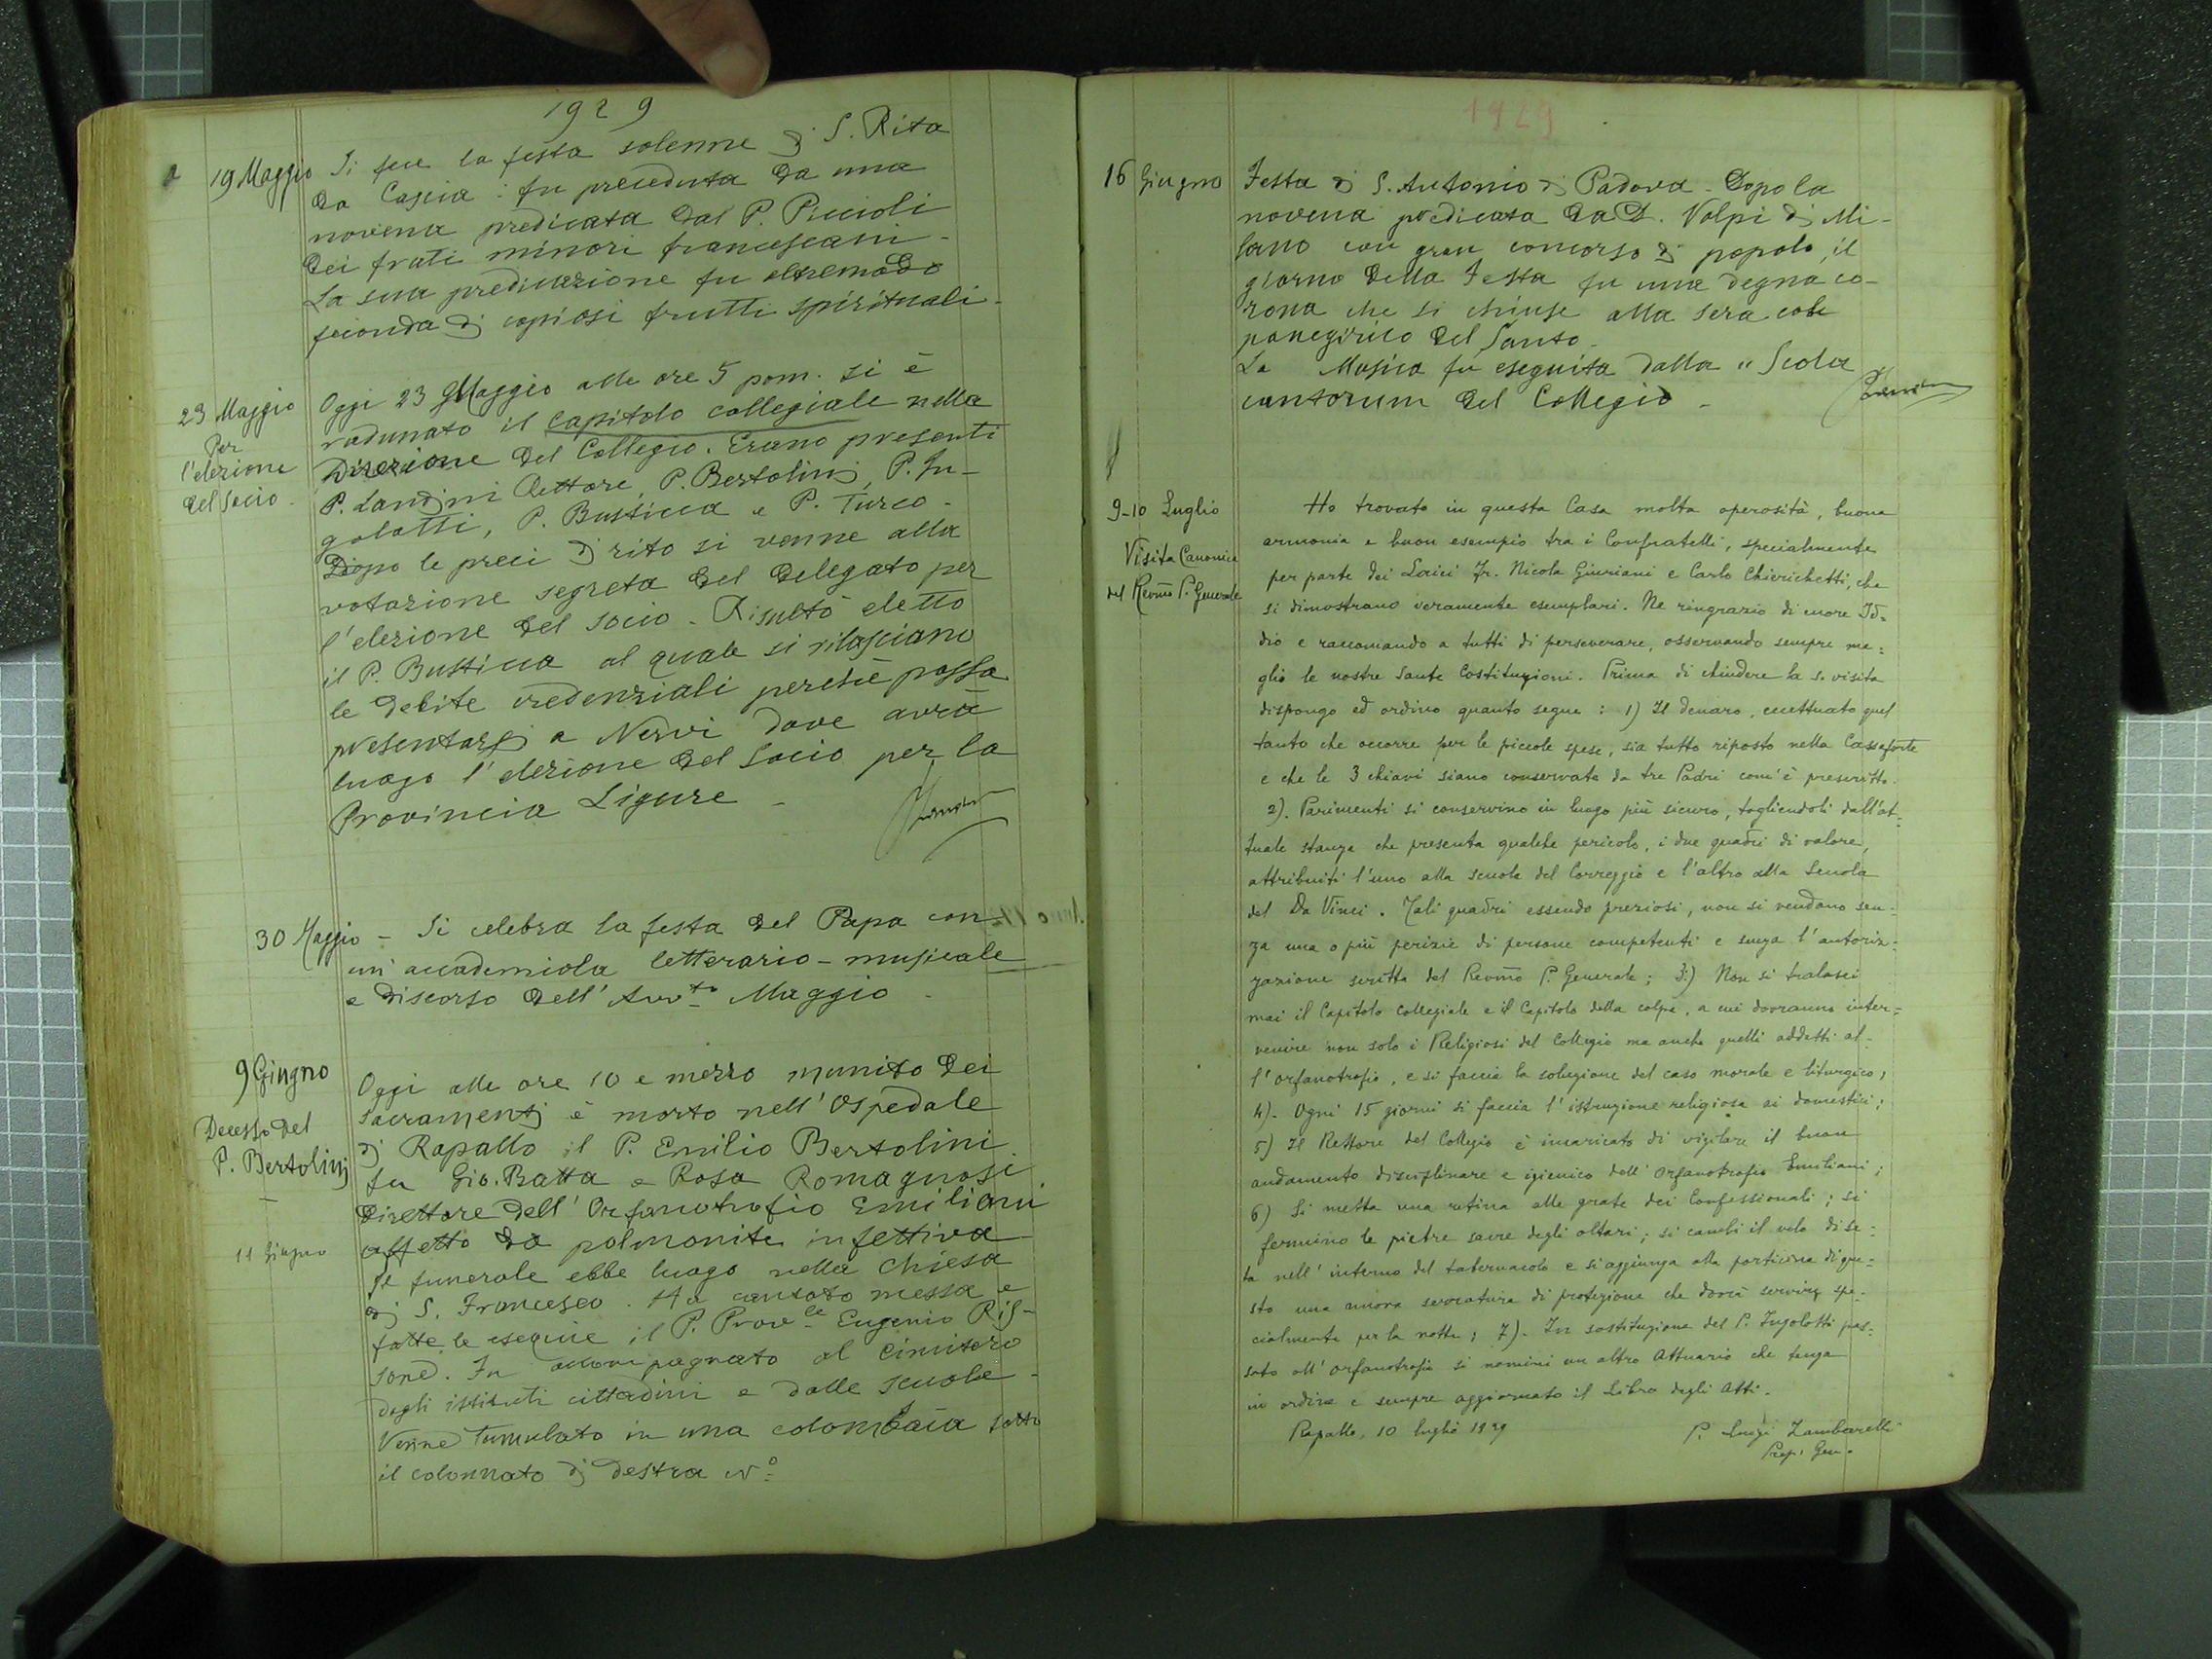 1929
19 Maggio
Si fece la festa solenne di S. Rita
da Cascia: fu preceduta da una
novena predicata dal P. Piccioli
dei frati minori francescani.
La sua predicazione fu oltremodo
feconda di copiosi frutti spirituali.
23 Maggio
Per
l'elezione
del Socio.
Oggi 23 Maggio alle ore 5 pom. si è
radunato il capitolo collegiale nella
Direzione del Collegio. Erano presenti
P. Landini Rettore, P. Bertolini, P. In-
golotti, P. Busticca e P. Turco.
Dopo le preci di rito si venne alla
votazione segreta del delegato per
l'elezione del socio. Risultò eletto
il P. Busticca al quale si rilasciano
le debite credenziali perchè possa
presentarsi a Nervi dove avrà
luogo l'elezione del Socio per la
Provincia Ligure.
30 Maggio - Si celebra la festa del Papa con
un'accademiola letterario-musicale
e discorso dell'Avv.to Maggio.
9 Giugno
Decesso del
P. Bertolini
11 Giugno
Oggi alle ore 10 e mezzo munito dei
sacramenti è morto nell'Ospedale
di Rapallo il P. Emilio Bertolini
fu Gio. Batta e Rosa Romagnosi
Direttore dell'Orfanotrofio Emiliani
affetto da polmonite infettiva
Il funerale ebbe luogo nella Chiesa
di S. Francesco. Ha cantato messa e
fatte le esequie il P. Prov.le Eugenio Ris-
sone. Fu accompagnato al Cimitero
dagli istituti cittadini e dalle scuole.
Venne tumulato in una colombaia sotto
il colonnato di destra N.°
1929
16 Giugno
Festa di S. Antonio di Padova. Dopo la
novena predicata da D. Volpi di Mi-
lano con gran concorso di popolo, il
giorno della Festa fu una degna co-
rona che si chiuse alla sera col
panegirico del Santo.
La Musica fu eseguita dalla "Scola
cantorum del Collegio.
9-10 Luglio
Visita Canonica
del Revmo P. Generale
Ho trovato in questa Casa molta operosità, buona
armonia e buon esempio tra i Confratelli, specialmente
per parte dei Laici Fr. Nicola Giuriani e Carlo Chierichetti, che
si dimostrano veramente esemplari. Ne ringrazio di cuore Id=
dio e raccomando a tutti di perseverare, osservando sempre me=
glio le nostre Sante Costituzioni. Prima di chiudere la s. visita
dispongo ed ordino quanto segue: 1) Il denaro, eccettuato quel
tanto che occorre per le piccole spese, sia tutto riposto nella Cassaforte
e che le 3 chiavi siano conservate da tre Padri com'è prescritto.
2). Parimenti si conservino in luogo più sicuro, togliendoli dall'at=
tuale stanza che presenta qualche pericolo, i due quadri di valore,
attribuiti l'uno alla scuola del Correggio e l'altro alla Scuola
del Da Vinci. Tali quadri essendo preziosi, non si vendano sen=
za una o più perizie di persone competenti e senza l'autoriz=
zazione scritta del Revmo P. Generale; 3.) Non si tralasci
mai il Capitolo Collegiale e il Capitolo della colpa, a cui dovranno inter=
venire non solo i Religiosi del Collegio ma anche quelli addetti al-
l'Orfanotrofio, e si faccia la soluzione del caso morale e liturgico;
4). Ogni 15 giorni si faccia l'istruzione religiosa ai domestici;
5) Il Rettore del Collegio è incaricato di vigilare il buon
andamento disciplinare e igienico dell'Orfanotrofio Emiliani;
6) Si metta una retina alle grate dei Confessionali; si
fermino le pietre sacre degli altari; si cambi il velo di se=
ta nell'interno del tabernacolo e si aggiunga alla porticina di que=
sto una nuova serratura di protezione che dovrà servire spe=
cialmente per la notte; 7). In sostituzione del P. Ingolotti pas=
sato all'orfanotrofio si nomini un altro Attuario che tenga
in ordine e sempre aggiornato il Libro degli Atti.
Rapallo, 10 luglio 1929
P. Luigi Zambarelli
Prep. Gen.